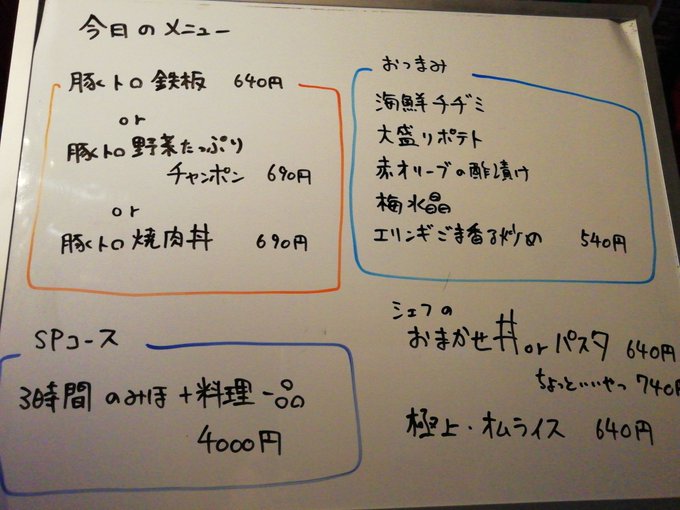 今日のメニュー
豚トロ鉄板 640円
or
豚トロ野菜たっぷり
チャンポン 690円
or
豚トロ焼肉丼 690円
おつまみ
海鮮チヂミ
大盛りポテト
赤オリーブの酢漬け
梅水晶
エリンギごま香る炒め 540円
SPコース
3時間のみほ+料理一品
4000円
シェフの
おまかせ丼orパスタ 640円
ちょっといいやつ 740円
極上・オムライス 640円